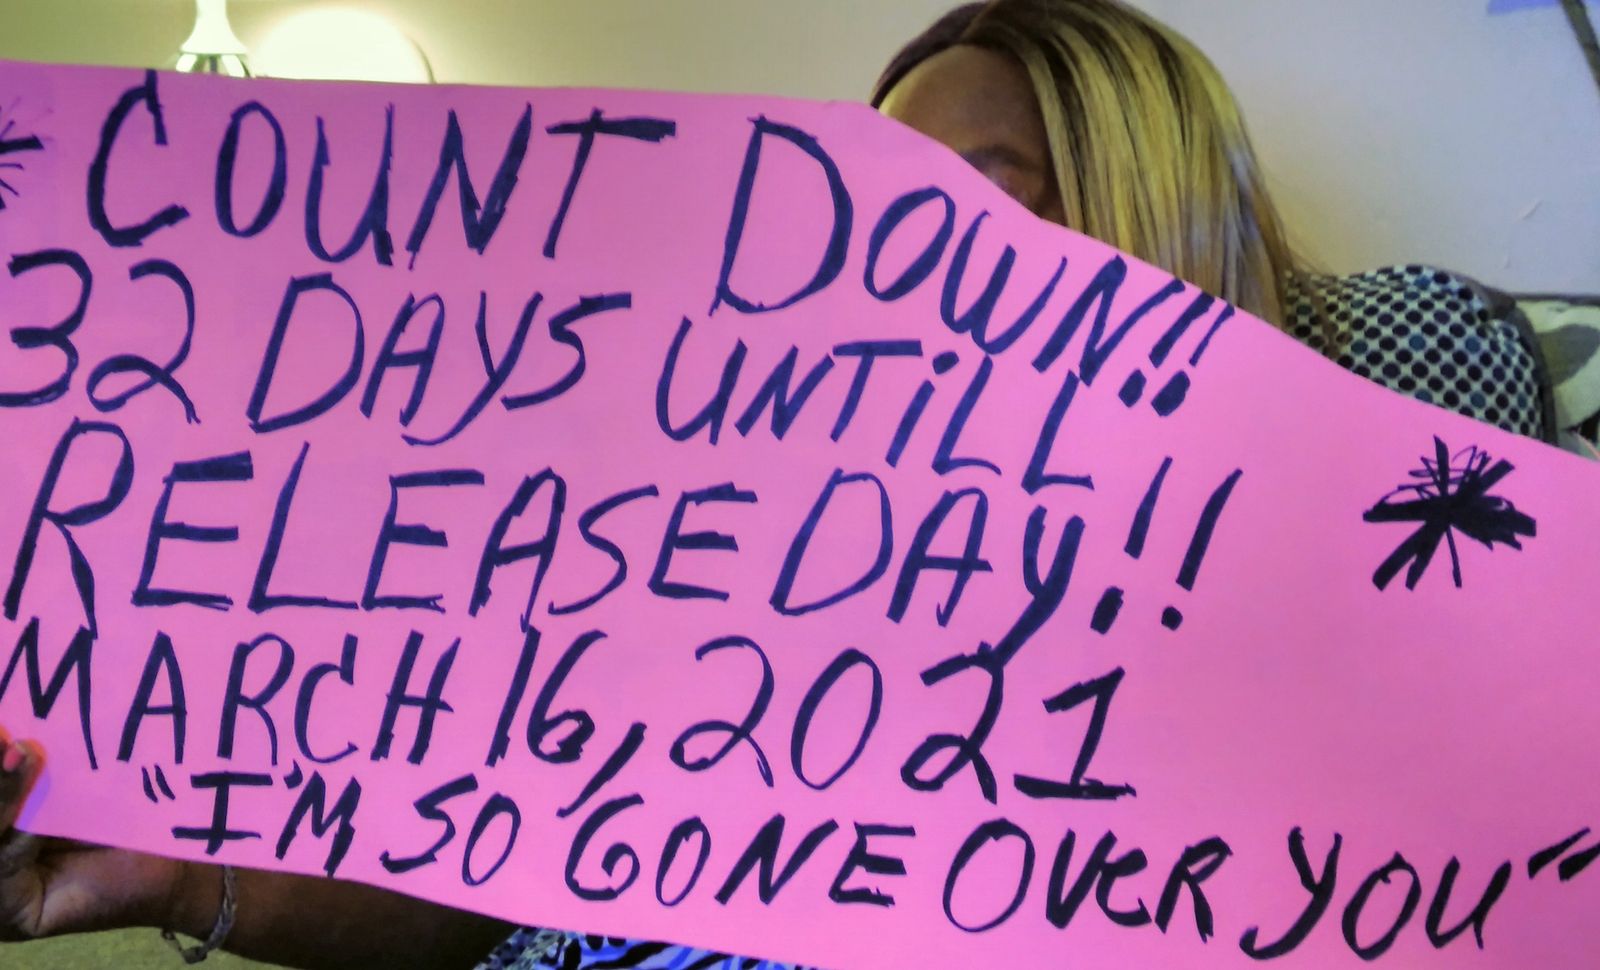 * COUNT DOWN!!
32 DAYS UNTiLL
RELEASE DAY!! *
MARCH 16, 2021
"I'M SO GONE OVeR YOU"